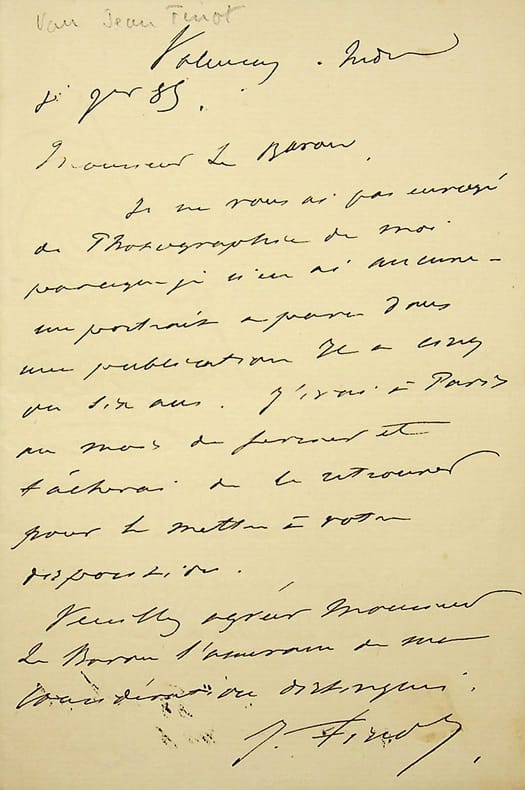 Van Jean Finot
Valençay. Indre
Xbr 85.
Monsieur le Baron,
Je ne vous ai pas envoyé
de Photographie de moi
parceque je n'en ai aucune –
un portrait a paru dans
une publication il y a cinq
ou six ans. J'irai à Paris
au mois de fevrier et
tâcherai de le retrouver
pour le mettre à votre
disposition.
Veuillez agréer Monsieur
Le Baron l'assurance de ma
considération distinguée.
J. Finot